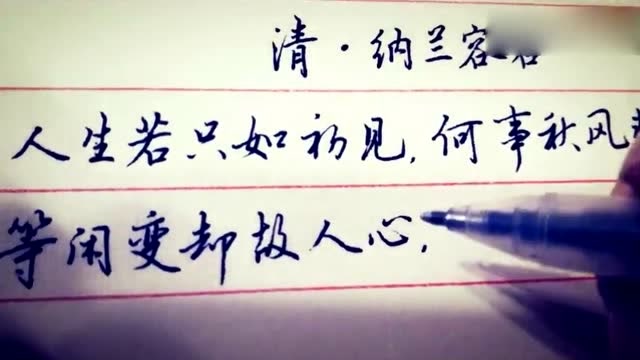 清·纳兰容若
人生若只如初见,何事秋风
等闲变却故人心,